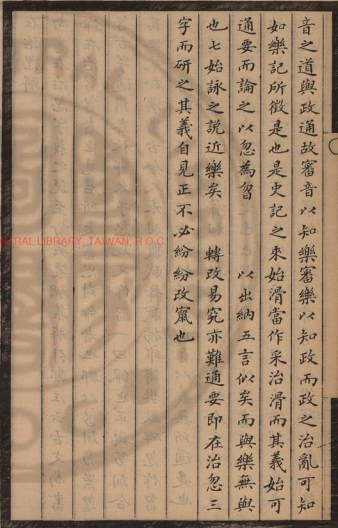 音之道與政通故審音以知樂審樂以知政而政之治亂可知
如樂記所徵是也是史記之來始滑當作采治滑而其義始可
通要而論之以忽為曶　以出納五言似矣而與樂無與
也七始詠之說近樂矣　轉改易究亦難通要即在治忽三
字而研之其義自見正不必紛紛改竄也
RAL LIBRARY, TAIWAN, R.O.C